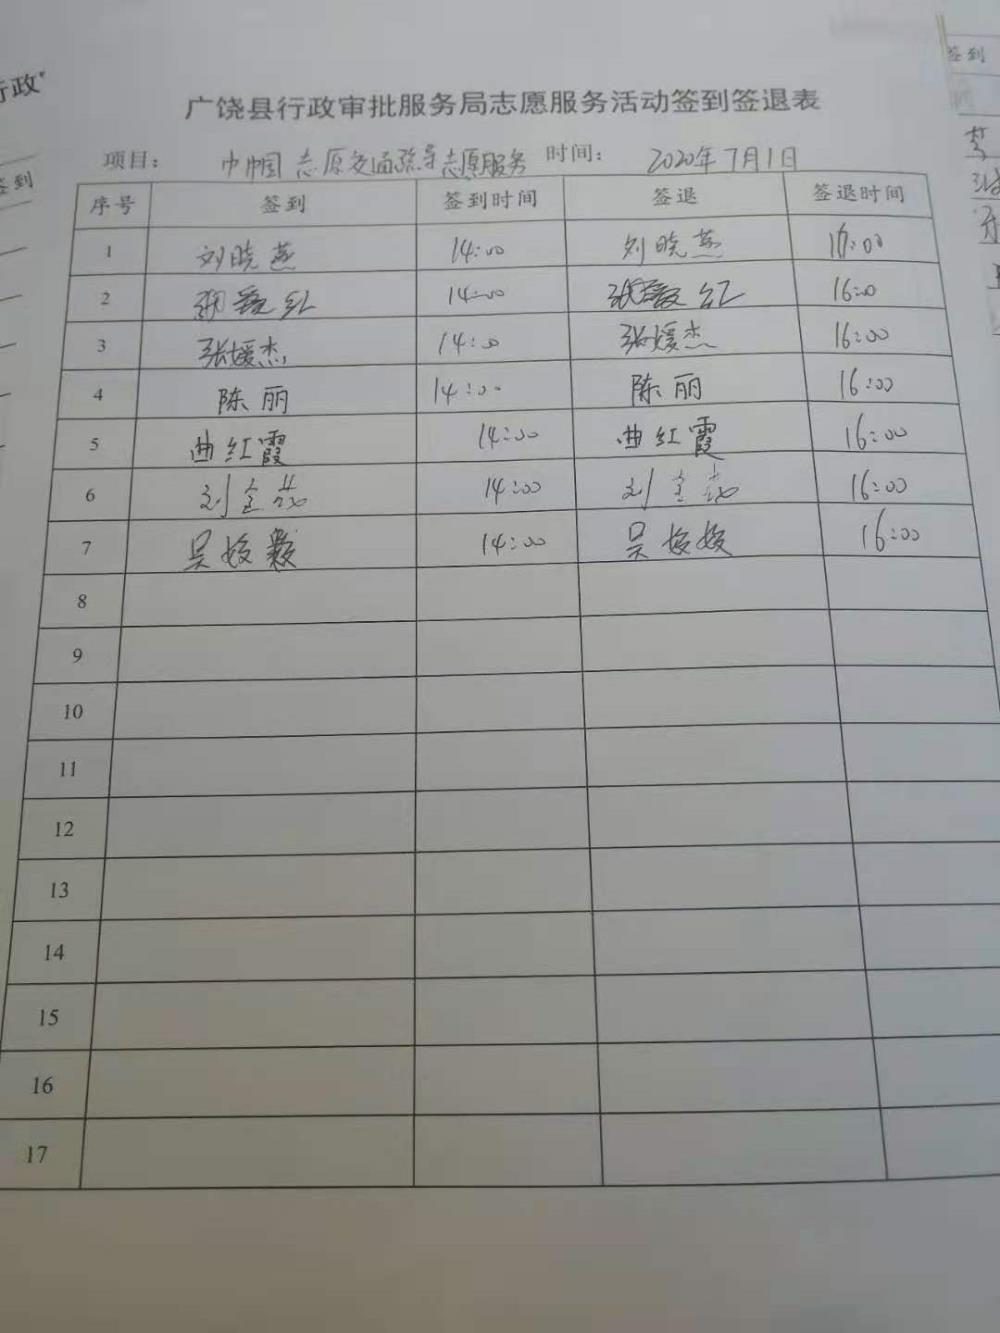 行政
签到
签到
广饶县行政审批服务局志愿服务活动签到签退表
项目： 巾帼志愿交通疏导志愿服务 时间： 2020年7月1日
序号 签到 签到时间 签退 签退时间
1 刘晓燕 14:00 刘晓燕 :00
2 红 14:00 红 16:0
3 张媛杰 14:0 张媛杰 16:00
4 陈丽 14:00 陈丽 16:00
5 曲红霞 14:00 曲红霞 16:00
6 刘 14:00 刘 16:00
7 吴姣 14:00 吴姣姣 16:00
8
9
10
11
12
13
14
15
16
17